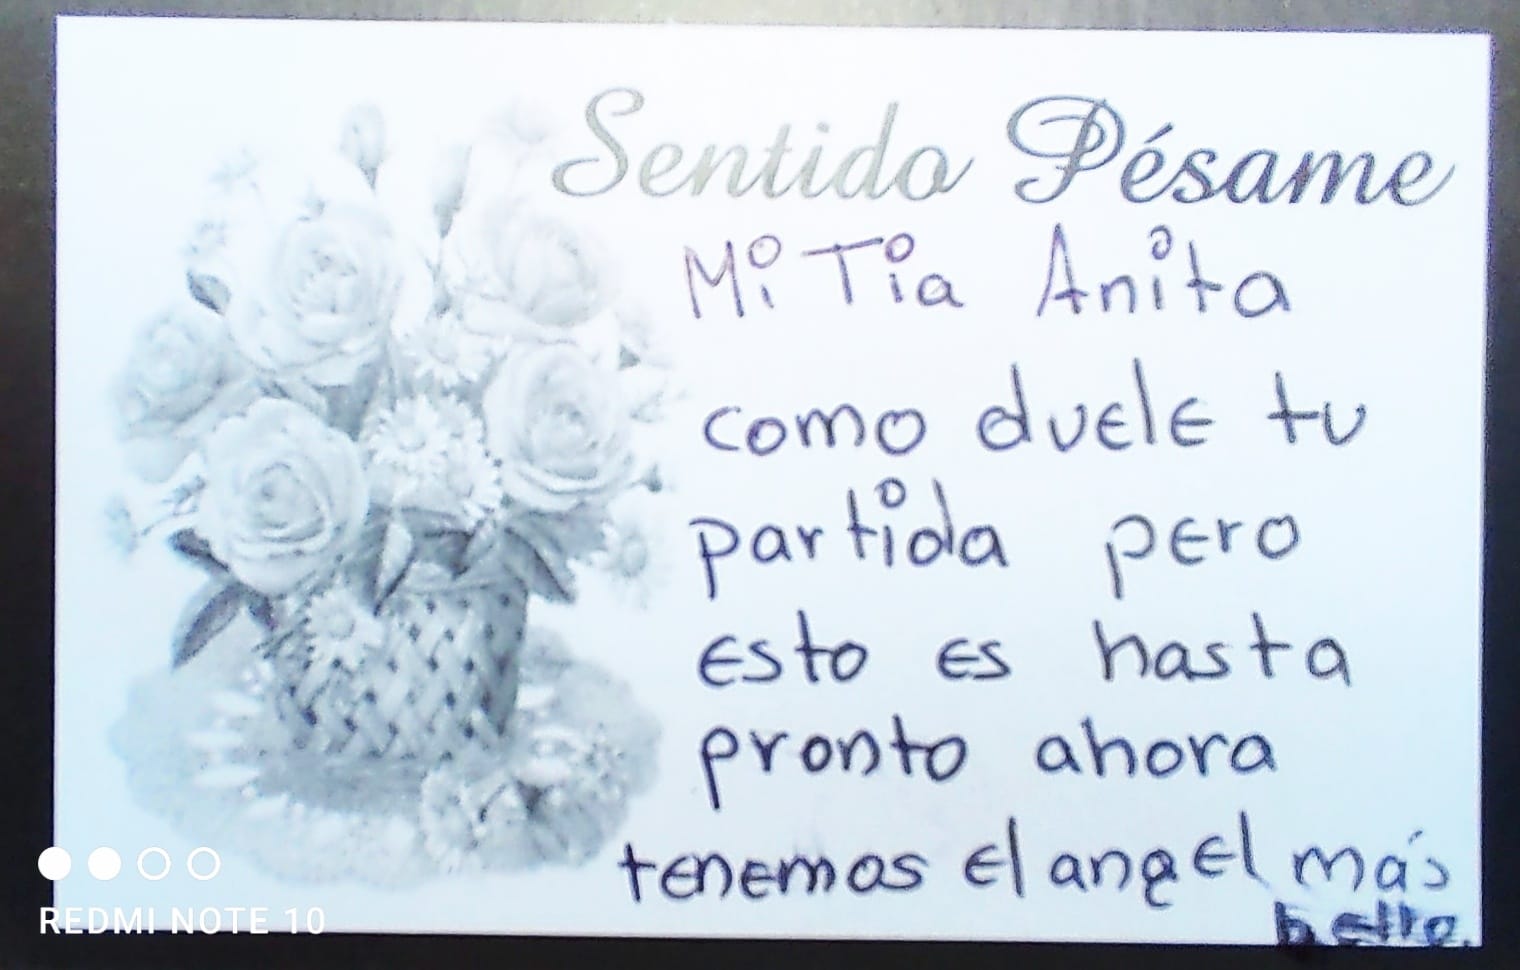 Sentido Pésame
Mi Tia Anita
como duele tu
partida pero
esto es hasta
pronto ahora
tenemos el angel más
bello.
REDMI NOTE 10